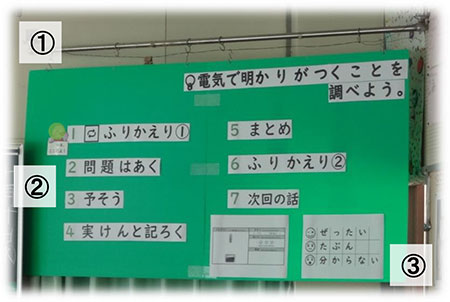 ①
電気で明かりがつくことを
調べよう。
1 ふりかえり①
2 問題はあく
3 予そう
4 実けんと記ろく
5 まとめ
6 ふりかえり②
7 次回の話
②
ぜったい
たぶん
分からない
③